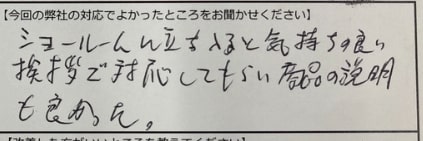 【今回の弊社の対応でよかったところをお聞かせください】
ショールームに立ち入ると気持ちの良い
挨拶で対応してもらい商品の説明
も良かった。
【改善した方がいいところを教えてください】